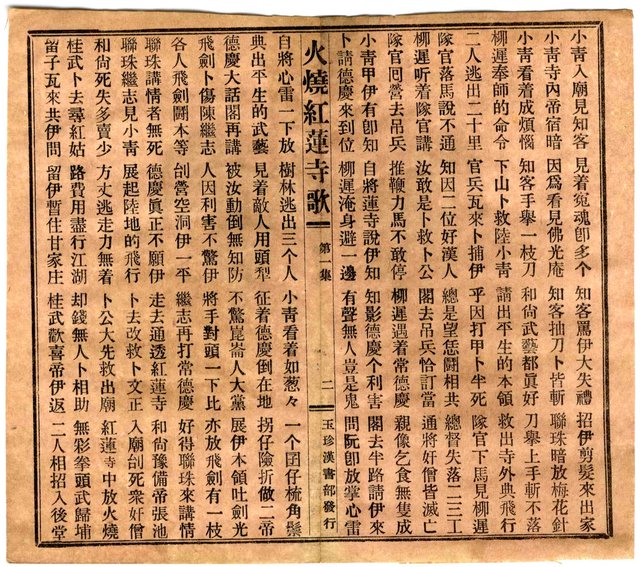 小青入廟見知客　見着冤魂卽多个　知客罵伊大失禮　招伊剪髮來出家
小青寺內帝宿暗　因爲看見佛光庵　知客抽刀卜皆斬　聯珠暗放梅花針
小青看着成煩惱　知客手舉一枝刀　和尙武藝都眞好　刀舉上手斬不落
柳遲奉師的命令　下山卜救陸小青　請出平生的本領　救出寺外典飛行
二人逃出二十里　官兵瓦來卜捕伊　乎因打甲卜半死　隊官下馬見柳遲
隊官落馬說不通　知因二位好漢人　總是望恁鬪相共　總督失落二三工
柳遲听着隊官講　汝敢是卜救卜公　閣去吊兵恰訂當　通將奸僧皆滅亡
隊官囘營去吊兵　推鞭力馬不敢停　柳遲遇着常德慶　親像乞食無隻成
小青甲伊有卽知　自將蓮寺說伊知　知影德慶个利害　閣去半路請伊來
卜請德慶來到位　柳遲淹身避一邊　有聲無人豈是鬼　問阮卽放掌心雷
火燒紅蓮寺歌　第一集　二　玉珍漢書部發行
自將心雷一下放　樹林逃出三个人　小青看着如葱々　一个囝仔梳角鬃
典出平生的武藝　見着敵人用頭犁　征着德慶倒在地　拐仔險折做二帝
德慶大話閣再講　被汝動倒無知防　不驚崑崙人大黨　展伊本領吐劍光
飛劍卜傷陳繼志　人因利害不驚伊　將手對頭一下比　亦放飛劍有一枝
各人飛劍鬪本等　刣營空洞伊一平　繼志再打常德慶　好得聯珠來講情
聯珠講情者無死　德慶眞正不願伊　走去通透紅蓮寺　和尙豫備帝張池
聯珠繼志見小青　展起陸地的飛行　卜去改救卜文正　入廟刣死衆奸僧
和尙死失多賣少　方丈逃走力無着　卜公大先救出廟　紅蓮寺中放火燒
桂武卜去尋紅姑　路費用盡行江湖　却錢無人卜相助　無彩拳頭武歸埔
留子瓦來共伊問　留伊暫住甘家庄　桂武歡喜帝伊返　二人相招入後堂